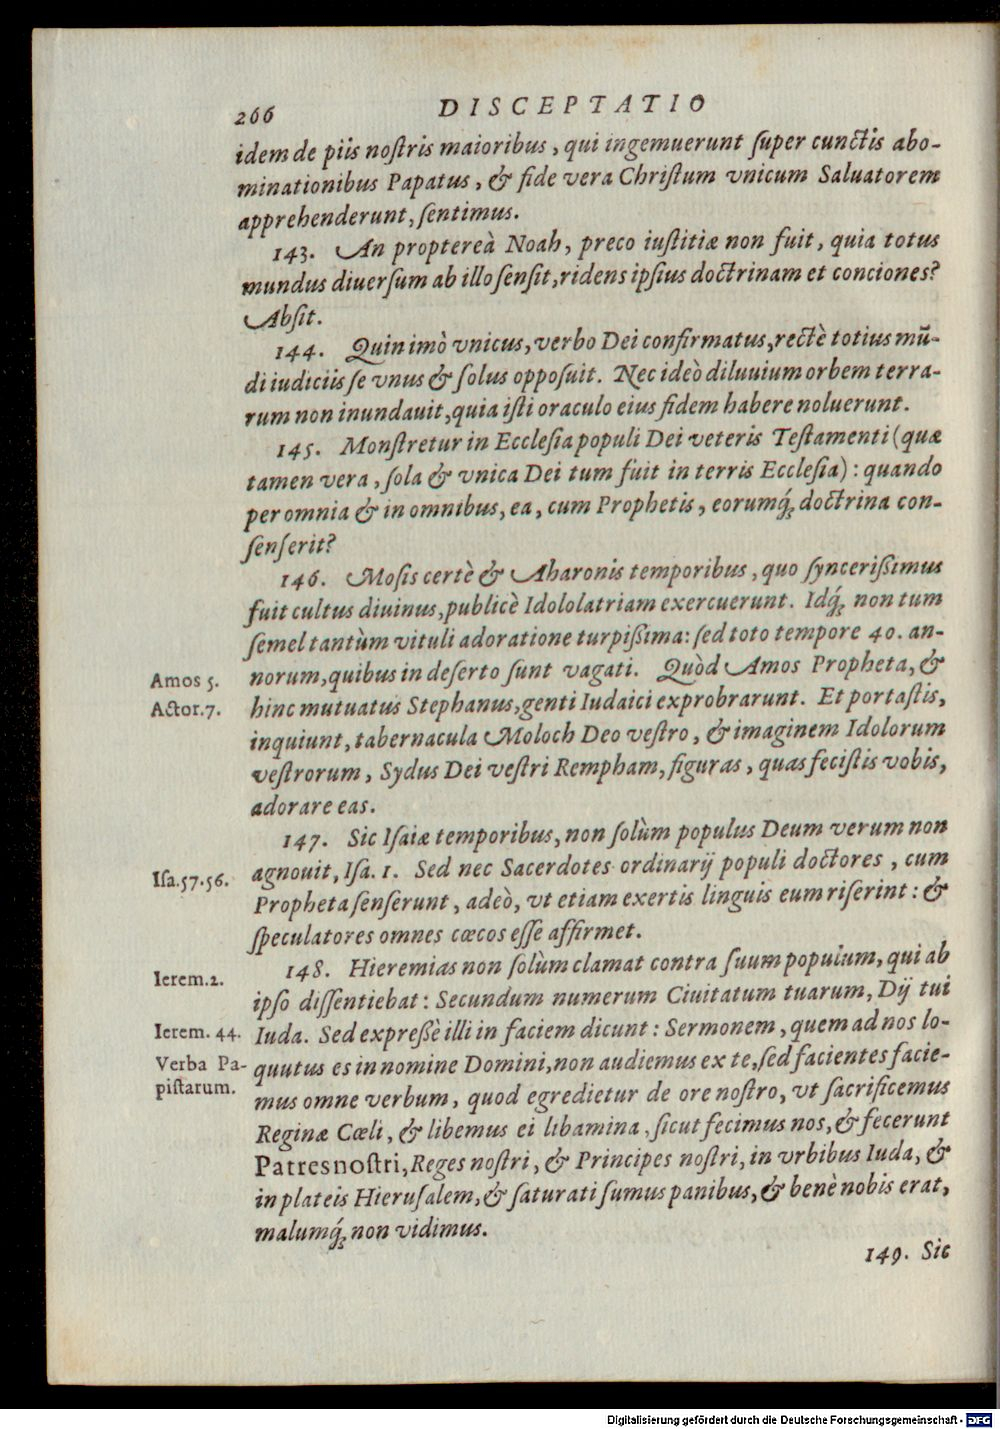 266 DISCEPTATIO
idem de piis noſtris maioribus, qui ingemuerunt ſuper cunctis abo-
minationibus Papatus, & fide vera Chriſtum vnicum Saluatorem
apprehenderunt, ſentimus.
143. An propterea̍ Noah, preco iuſtitiæ non fuit, quia totus
mundus diuerſum ab illo ſenſit, ridens ipſius doctrinam et conciones?
Abſit.
144. Quin imò vnicus, verbo Dei confirmatus, rectè totius mū-
di iudiciis ſe vnus & ſolus oppoſuit. Nec ideò diluuium orbem terra-
rum non inundauit, quia iſti oraculo eius fidem habere noluerunt.
145. Monſtretur in Eccleſia populi Dei veteris Teſtamenti (quæ
tamen vera, ſola & vnica Dei tum fuit in terris Eccleſia): quando
per omnia & in omnibus, ea, cum Prophetis, eorumq́ꝫ doctrina con-
ſenſerit?
146. Moſis certè & Aharonis temporibus, quo ſynceriſsimus
fuit cultus diuinus, publicè Idololatriam exercuerunt. Idq́ꝫ non tum
ſemel tantùm vituli adoratione turpiſsima: ſed toto tempore 40. an-
Amos 5. norum, quibus in deſerto ſunt vagati. Quòd Amos Propheta, &
Actor.7. hinc mutuatus Stephanus, genti Iudaici exprobrarunt. Et portaſtis,
inquiunt, tabernacula Moloch Deo veſtro, & imaginem Idolorum
veſtrorum, Sydus Dei veſtri Rempham, figuras, quas feciſtis vobis,
adorare eas.
147. Sic Iſaiæ temporibus, non ſolùm populus Deum verum non
Iſa.57.56. agnouit, Iſa. 1. Sed nec Sacerdotes ordinarij populi doctores, cum
Propheta ſenſerunt, adeò, vt etiam exertis linguis eum riſerint: &
ſpeculatores omnes cœcos eſſe affirmet.
148. Hieremias non ſolùm clamat contra ſuum populum, qui ab
Ierem.2. ipſo diſſentiebat: Secundum numerum Ciuitatum tuarum, Dij tui
Ierem. 44. Iuda. Sed expreſsè illi in faciem dicunt: Sermonem, quem ad nos lo-
Verba Pa- quutus es in nomine Domini, non audiemus ex te, ſed facientes facie-
piſtarum. mus omne verbum, quod egredietur de ore noſtro, vt ſacrificemus
Reginæ Cœli, & libemus ei libamina, ſicut fecimus nos, & fecerunt
Patres noſtri, Reges noſtri, & Principes noſtri, in vrbibus Iuda, &
in plateis Hieruſalem, & ſaturati ſumus panibus, & benè nobis erat,
malumq́ꝫ non vidimus.
149. Sic
Digitalisierung gefördert durch die Deutsche Forschungsgemeinschaft - DFG